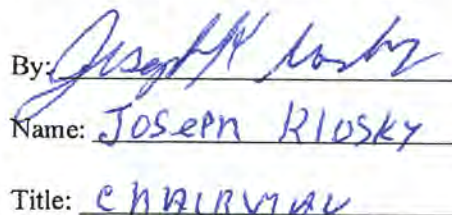 By: Joseph Klosky
Name: Joseph Klosky
Title: Chairman